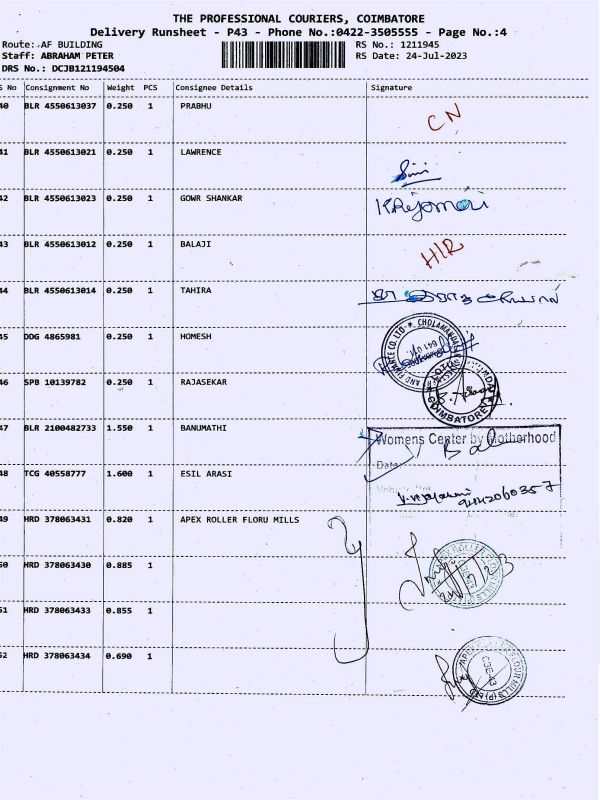 THE PROFESSIONAL COURIERS, COIMBATORE
Delivery Runsheet - P43 - Phone No.:0422-3505555 - Page No.:4
Route: AF BUILDING RS No.: 1211945
Staff: ABRAHAM PETER RS Date: 24-Jul-2023
DRS No.: DCJB121194504
S No Consignment No Weight PCS Consignee Details Signature
40 BLR 4550613037 0.250 1 PRABHU CN
41 BLR 4550613021 0.250 1 LAWRENCE
42 BLR 4550613023 0.250 1 GOWR SHANKAR
43 BLR 4550613012 0.250 1 BALAJI HIR
44 BLR 4550613014 0.250 1 TAHIRA
45 DDG 4865981 0.250 1 HOMESH
46 SPB 10139782 0.250 1 RAJASEKAR
COIMBATORE
47 BLR 2100482733 1.550 1 BANUMATHI
Womens Center by Motherhood
Date
48 TCG 40558777 1.600 1 ESIL ARASI
49 HRD 378063431 0.820 1 APEX ROLLER FLORU MILLS
50 HRD 378063430 0.885 1
51 HRD 378063433 0.855 1
52 HRD 378063434 0.690 1